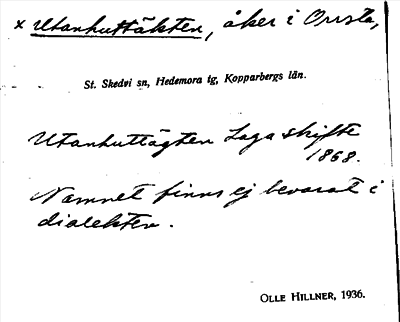 x Utanhuttäkten, åker i Orrsta,
St. Skedvi sn, Hedemora tg, Kopparbergs län.
Utanhuttägten Laga skifte
1868.
Namnet finns ej bevarat i
dialekten.
OLLE HILLNER, 1936.